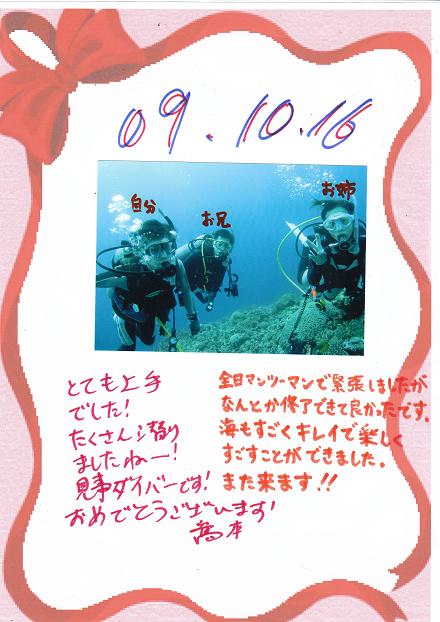 09.10.16
自分
お兄
お姉
とても上手
でした!
たくさん潜り
ましたねー!
見事ダイバーです!
おめでとうございます!
高本
全日マンツーマンで緊張しましたが
なんとか修了できて良かったです。
海もすごくキレイで楽しく
すごすことができました。
また来ます!!